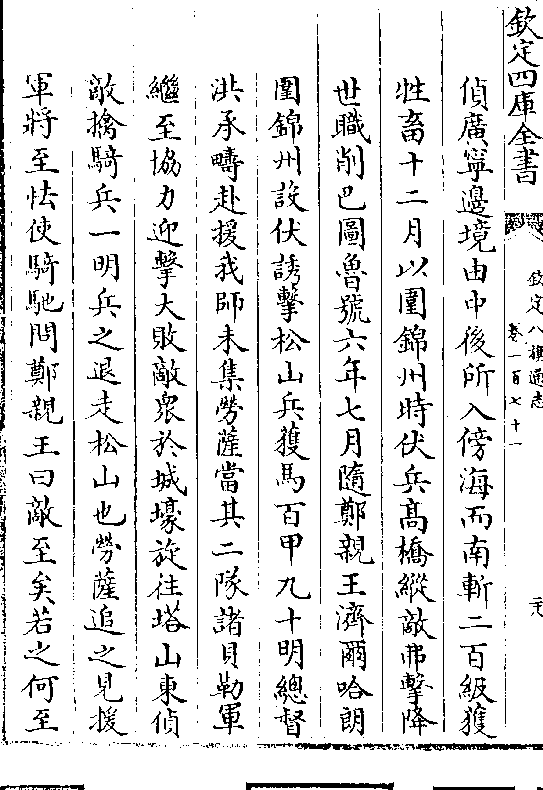 欽定四庫全書
欽定八旗通志
卷一百七十一
二十八
偵廣寧邊境由中後所入傍海而南斬二百級獲
牲畜十二月以圍錦州時伏兵高橋縱敵弗擊降
世職削巴圖魯號六年七月隨鄭親王濟爾哈朗
圍錦州設伏誘擊松山兵獲馬百甲九十明總督
洪承疇赴援我師未集勞薩當其二隊諸貝勒軍
繼至協力迎擊大敗敵衆於城壕旋往塔山東偵
敵擒騎兵一明兵之退走松山也勞薩追之見援
軍將至怯使騎馳問鄭親王曰敵至矣若之何至